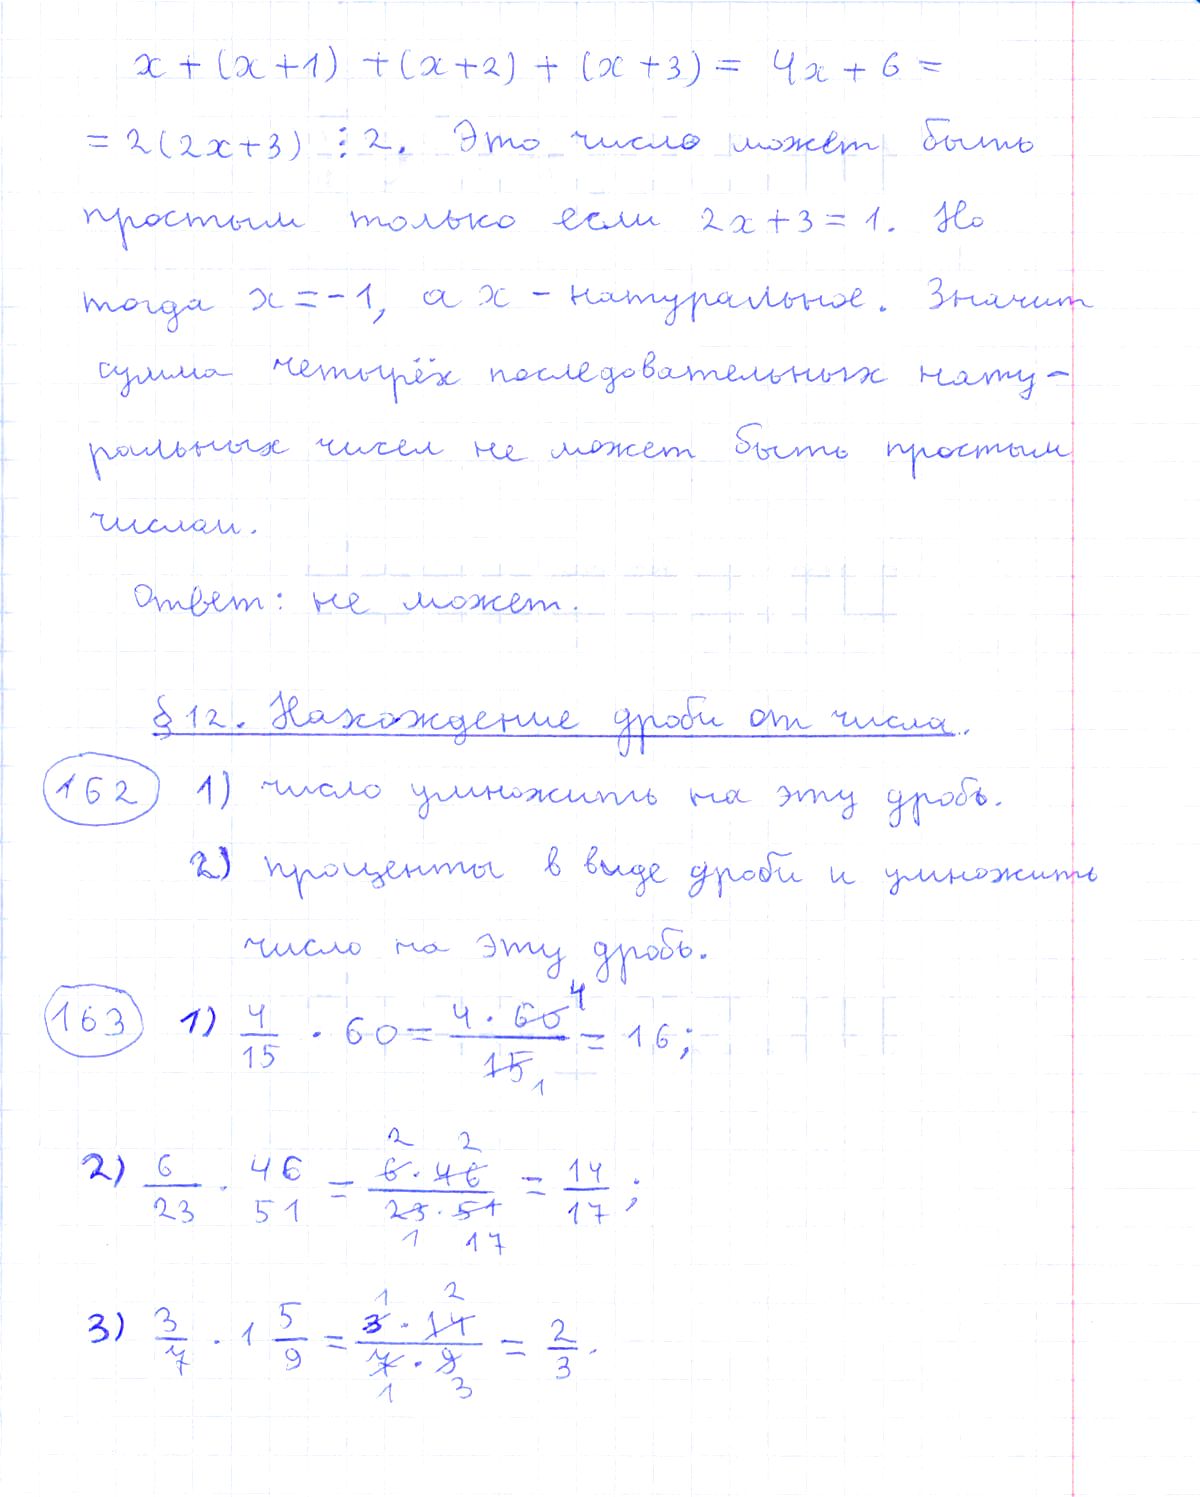 x + (x+1) + (x+2) + (x+3) = 4x + 6 =
= 2(2x+3) ⋮ 2. Это число может быть
простым только если 2x+3=1. Но
тогда x=-1, а x - натуральное. Значит
сумма четырёх последовательных нату-
ральных чисел не может быть простым
числом.
Ответ: не может.
§12. Нахождение дроби от числа.
162 1) число умножить на эту дробь.
2) проценты в виде дроби и умножить
число на эту дробь.
163 1) 4/15 · 60 = (4 · 60 4)/(15 1) = 16;
2) 6/23 · 46/51 = (6 2 · 46 2)/(23 1 · 51 17) = 14/17;
3) 3/7 · 1 5/9 = (3 1 · 14 2)/(7 1 · 9 3) = 2/3.